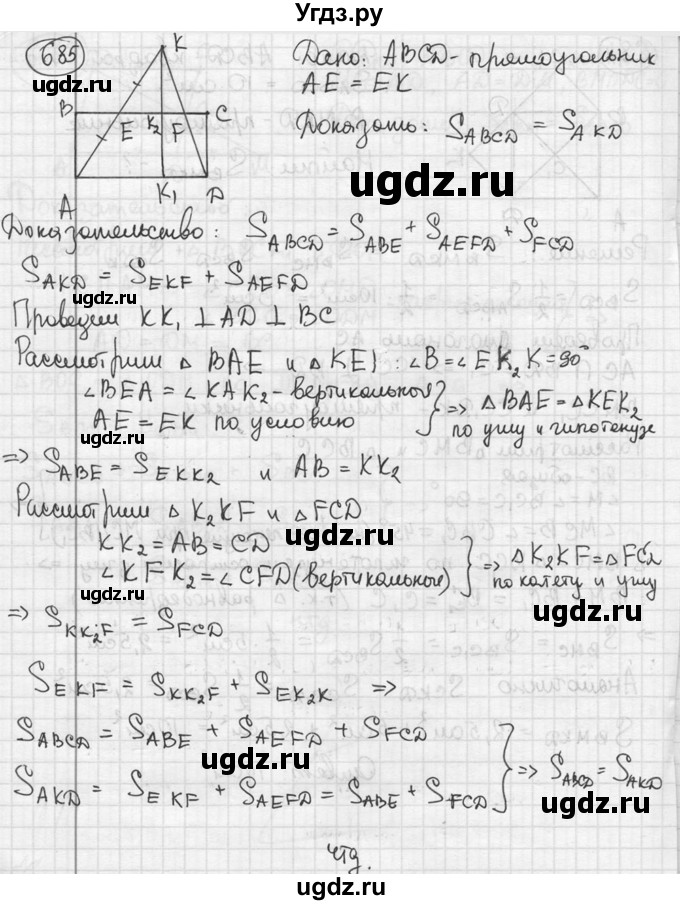 Угдз.ру
685
Дано: ABCD - прямоугольник
AE = EK
Доказать: S_ABCD = S_AKD
K
B E K₂ F C
A K₁ D
ugdz.ru
ugdz.ru
Доказательство: S_ABCD = S_ABE + S_AEFD + S_FCD
S_AKD = S_EKF + S_AEFD
ugdz.ru
ugdz.ru
Проведем KK₁ ⊥ AD ⊥ BC
Рассмотрим △ BAE и △ KE : ∠B = ∠EK₂K = 90°
∠BEA = ∠KAK₂ - вертикальноя
AE = EK по условию
⇒ △BAE = △KEK₂
по углу и гипотенузе
ugdz.ru
ugdz.ru
⇒ S_ABE = S_EKK₂ и AB = KK₂
Рассмотрим △ K₂KF и △FCD
KK₂ = AB = CD
∠KFK₂ = ∠CFD (вертикальные)
⇒ △K₂KF = △FCD
по катету и углу
ugdz.ru
ugdz.ru
ugdz.ru
⇒ S_KK₂F = S_FCD
S_EKF = S_KK₂F + S_EK₂K ⇒
ugdz.ru
ugdz.ru
S_ABCD = S_ABE + S_AEFD + S_FCD
S_AKD = S_EKF + S_AEFD = S_ABE + S_FCD
⇒ S_ABCD = S_AKD
ugdz.ru
ugdz.ru
ugdz.ru
чтд.
ugdz.ru
ugdz.ru